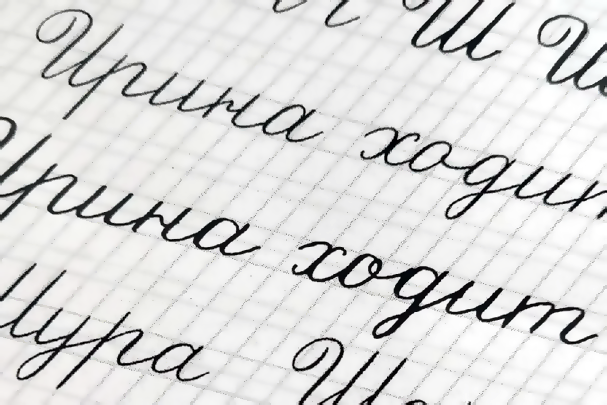 Ш
Ирина ходит
Ирина ходит
Шура